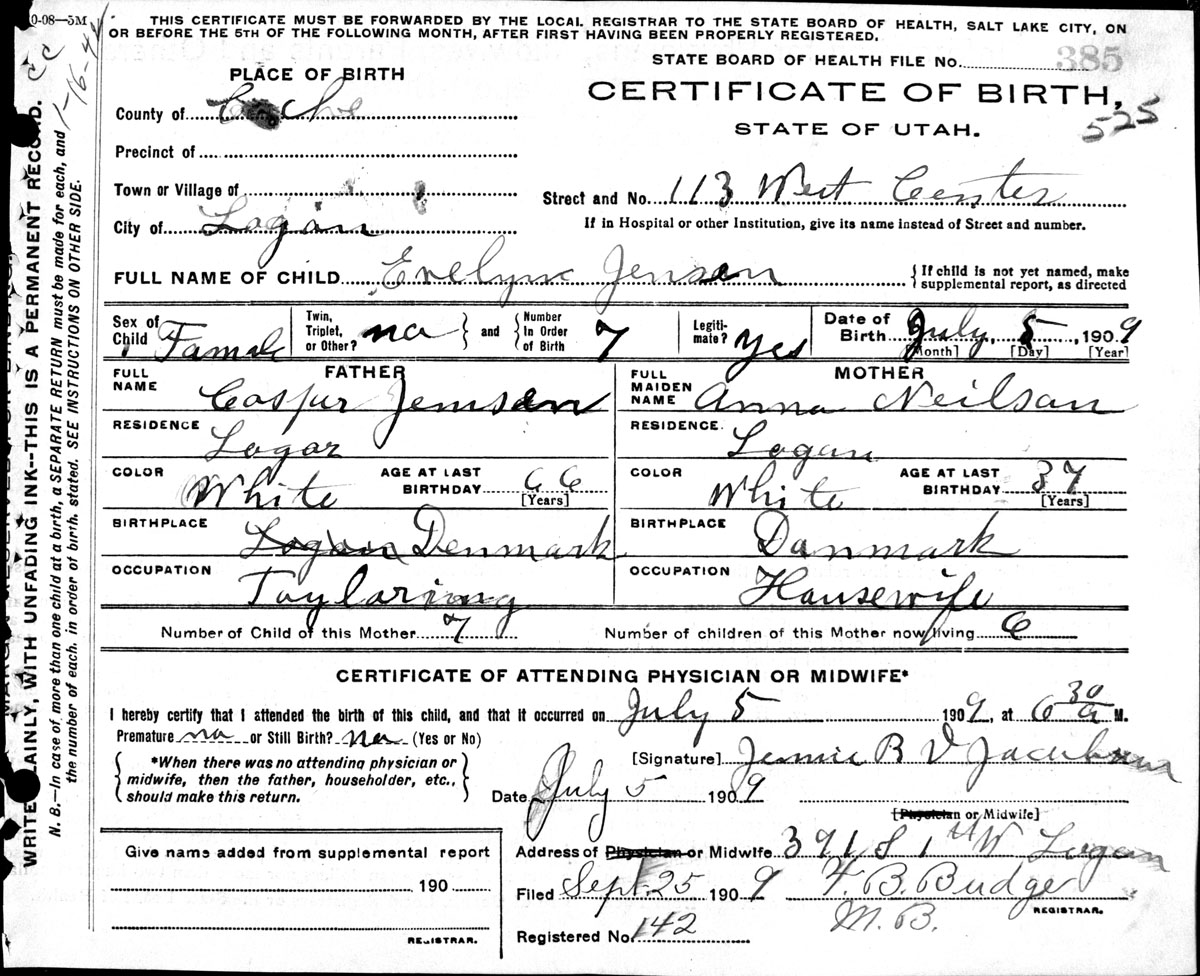 0-08—5M
THIS CERTIFICATE MUST BE FORWARDED BY THE LOCAL REGISTRAR TO THE STATE BOARD OF HEALTH, SALT LAKE CITY, ON
OR BEFORE THE 5TH OF THE FOLLOWING MONTH, AFTER FIRST HAVING BEEN PROPERLY REGISTERED.
CC
1-16-42
STATE BOARD OF HEALTH FILE No. 385
PLACE OF BIRTH
CERTIFICATE OF BIRTH,
525
STATE OF UTAH.
County of Cache
Precinct of
Town or Village of
Street and No. 113 West Center
If in Hospital or other Institution, give its name instead of Street and number.
City of Logan
FULL NAME OF CHILD Evelyne Jensen
{If child is not yet named, make
supplemental report, as directed
Sex of Child Famale
Twin, Triplet, or Other? no } and { Number In Order of Birth 7
Legiti-mate? yes
Date of Birth July 5, 1909
[Month] [Day] [Year]
FATHER
FULL NAME Caspur Jemsen
MOTHER
FULL MAIDEN NAME Anna Neilsan
RESIDENCE Logar
RESIDENCE. Logan
COLOR White
AGE AT LAST BIRTHDAY 66 [Years]
COLOR White
AGE AT LAST BIRTHDAY 37 [Years]
BIRTHPLACE Logan Denmark
BIRTHPLACE Danmark
OCCUPATION Taylaring
OCCUPATION Hausewife
Number of Child of this Mother 7
Number of children of this Mother now living 6
CERTIFICATE OF ATTENDING PHYSICIAN OR MIDWIFE*
I hereby certify that I attended the birth of this child, and that it occurred on July 5 1909, at 6 30 a M.
Premature no or Still Birth? no (Yes or No)
{ *When there was no attending physician or
midwife, then the father, householder, etc.,
should make this return. }
[Signature] Jennie B V
Date July 5 1909
[Physician or Midwife]
Address of Physician or Midwife 391 S 1 W Logan
Filed Sept. 25 1909 F. B. Budge
M.B. REGISTRAR.
Registered No. 142
Give name added from supplemental report
190
REGISTRAR.
WRITE PLAINLY, WITH UNFADING INK--THIS IS A PERMANENT RECORD.
N. B.—In case of more than one child at a birth, a SEPARATE RETURN must be made for each, and
the number of each, in order of birth, stated. SEE INSTRUCTIONS ON OTHER SIDE.